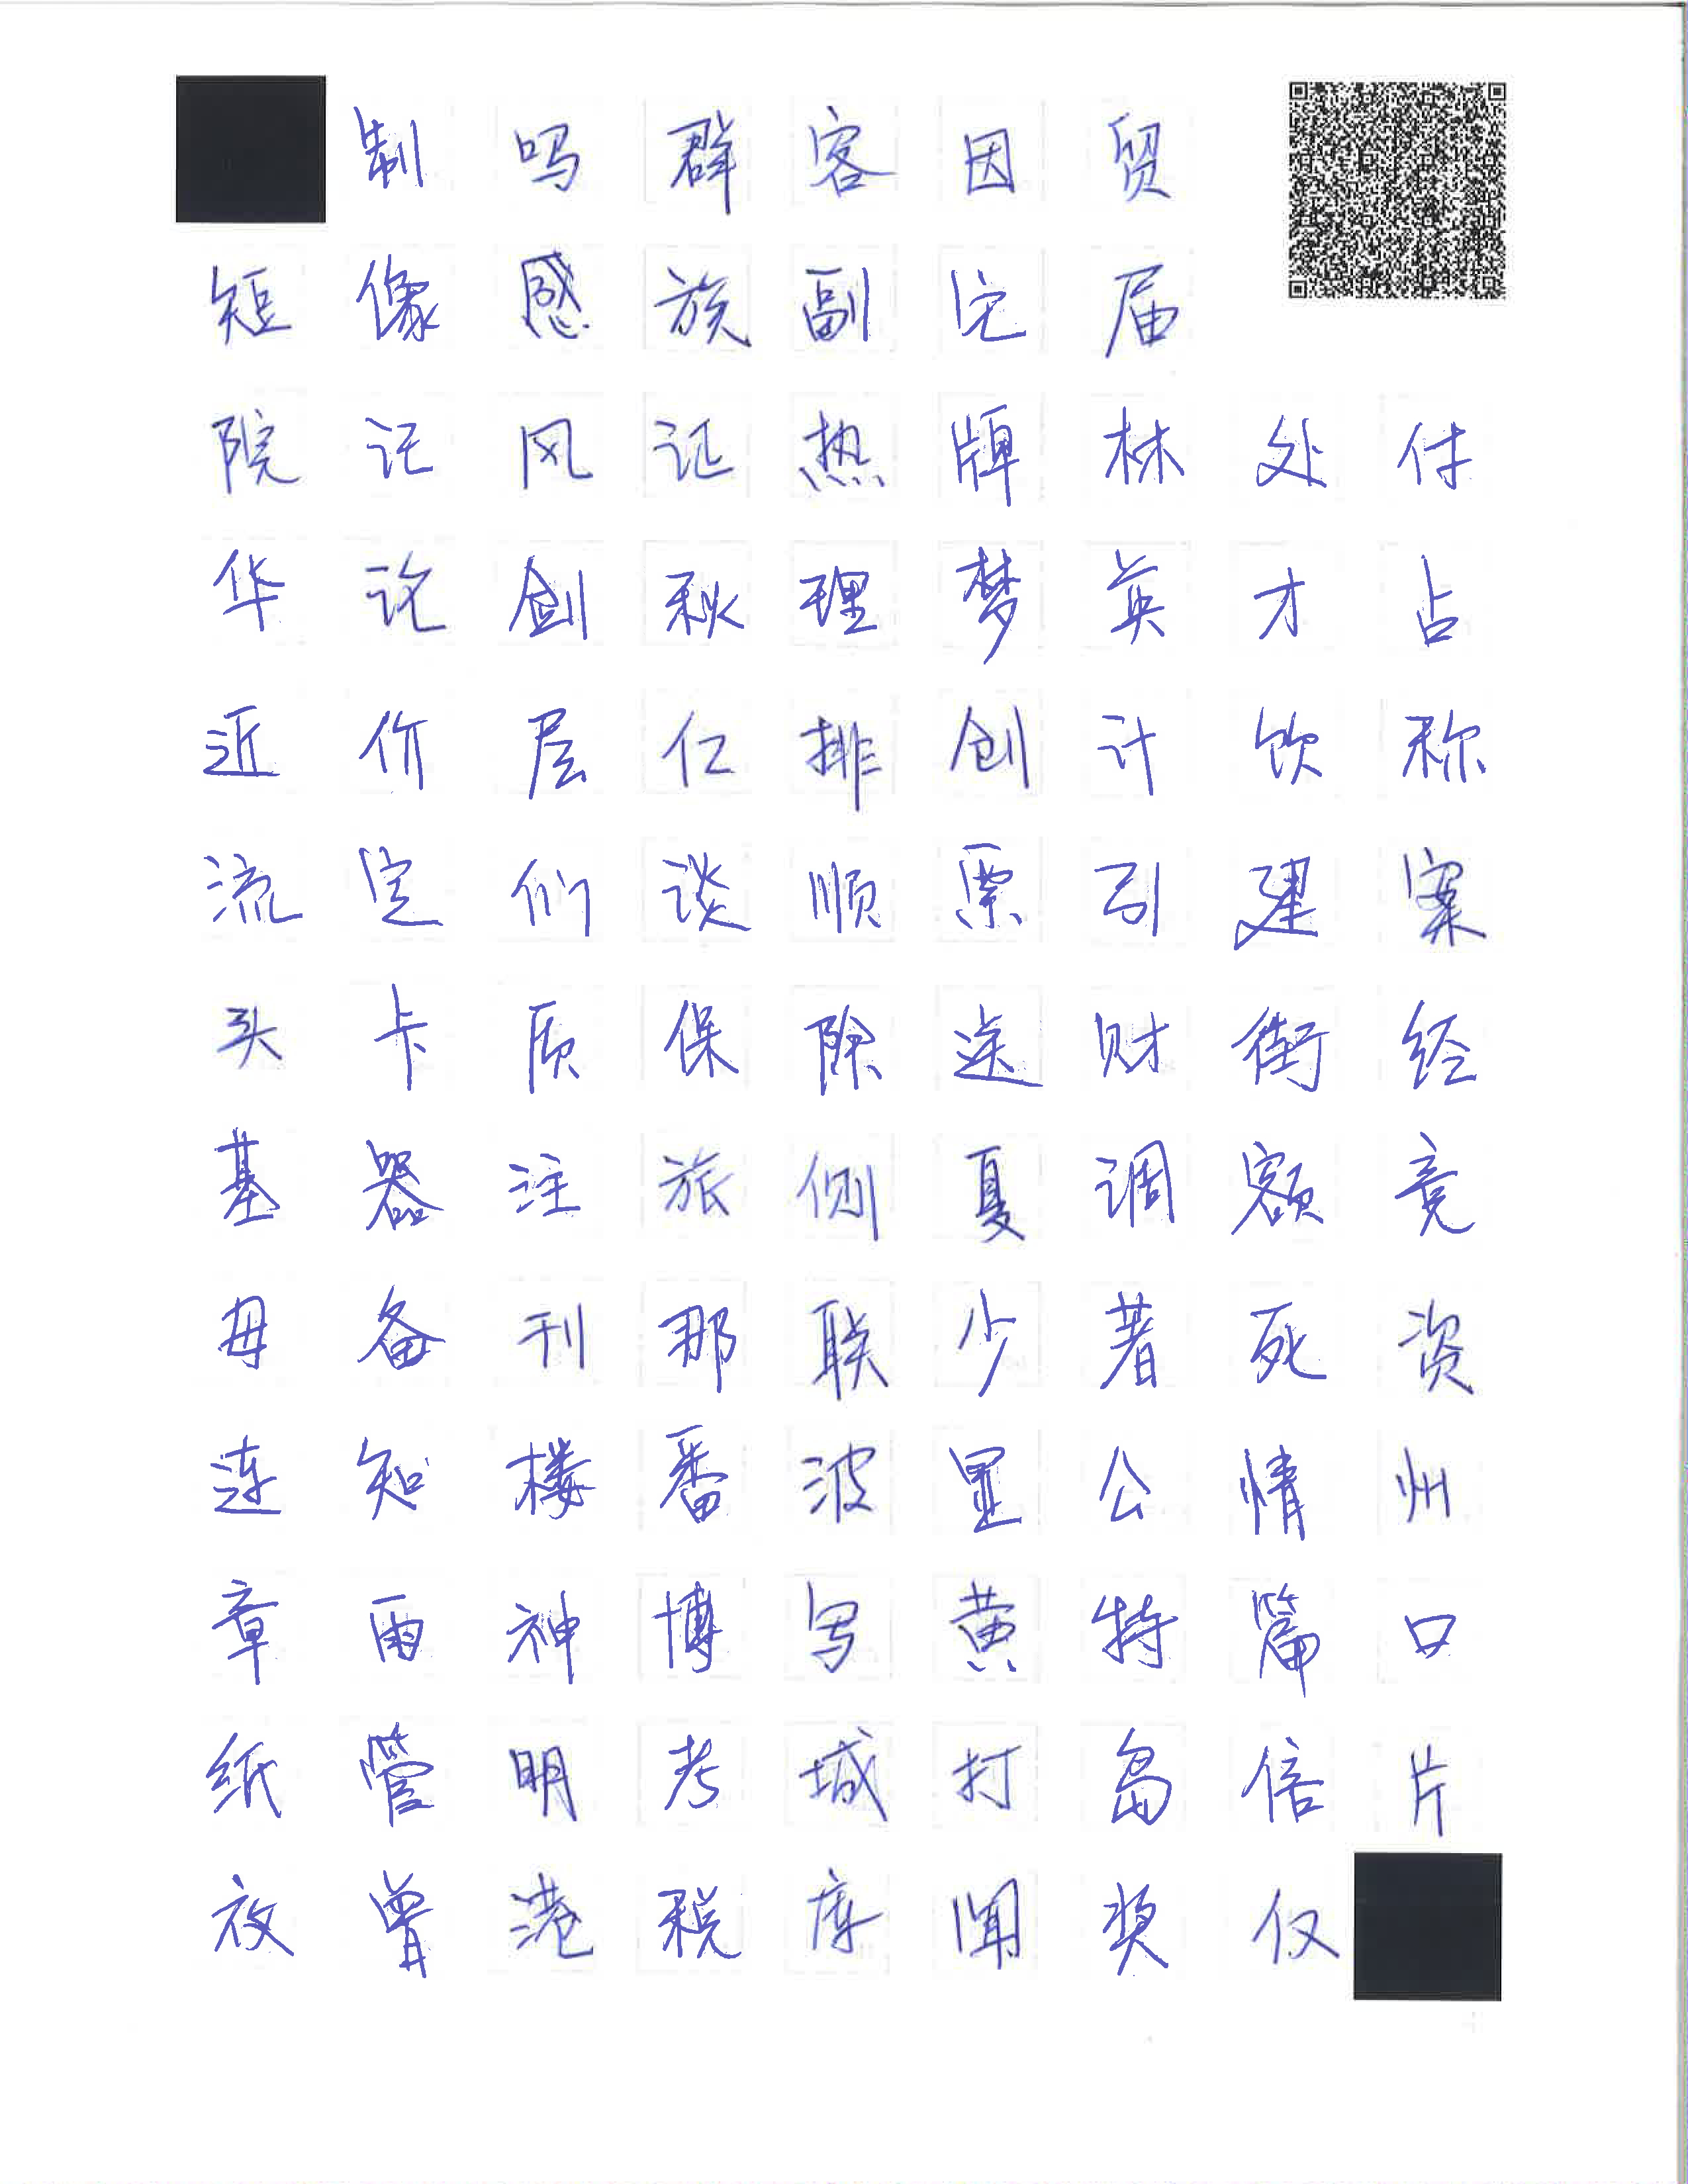 制吗群客因贸
短像感族副它届
院记风证热牌林处付
华论剑秋理梦英才占
近价层仁排创计饮称
流定们谈顺票引建案
头卡质保除途财街经
基器注旅侧夏调额竞
母备刊那联少著死资
连知楼番波显公情州
章雨神博写黄特篇口
纸管明考城打岛倍片
放曾港税库闻奖仅